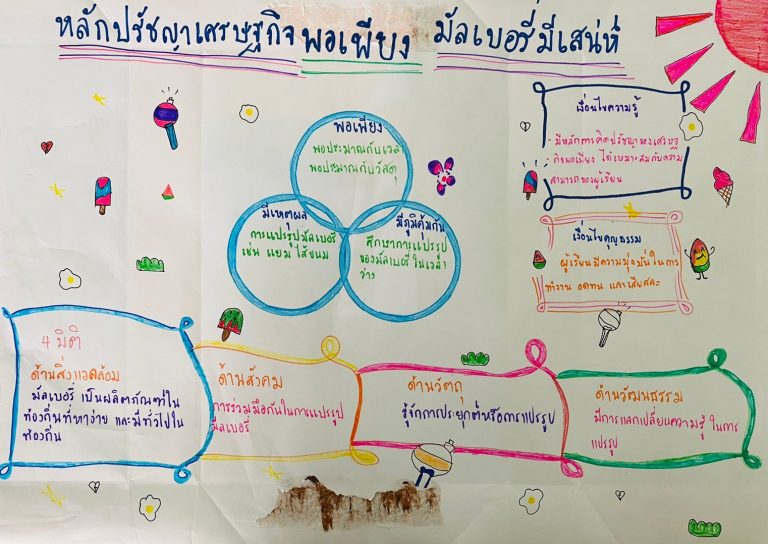 หลักปรัชญาเศรษฐกิจพอเพียง มัลเบอรี่มีเสน่ห์
พอเพียง
พอประมาณกับเวลา
พอประมาณกับวัสดุ
มีเหตุผล
การแปรรูปมัลเบอรี่
เช่น แยม ไส้ขนม
มีภูมิคุ้มกัน
ศึกษาการแปรรูป
ของมัลเบอรี่ ในเวลา
ว่าง
เงื่อนไขความรู้
- มีหลักการคิดปรัชญาของเศรษฐ
กิจพอเพียง ได้เหมาะสมกับความ
สามารถของผู้เรียน
เงื่อนไขคุณธรรม
ผู้เรียนมีความมุ่งมั่นในการ
ทำงาน อดทน และเสียสละ
4 มิติ
ด้านสิ่งแวดล้อม
มัลเบอรี่ เป็นผลิตภัณฑ์ใน
ท้องถิ่นที่หาง่าย และมีทั่วไปใน
ท้องถิ่น
ด้านสังคม
การร่วมมือกันในการแปรรูป
มัลเบอรี่
ด้านวัตถุ
รู้จักการประยุกต์หรือการแปรรูป
ด้านวัฒนธรรม
มีการแลกเปลี่ยนความรู้ ในการ
แปรรูป